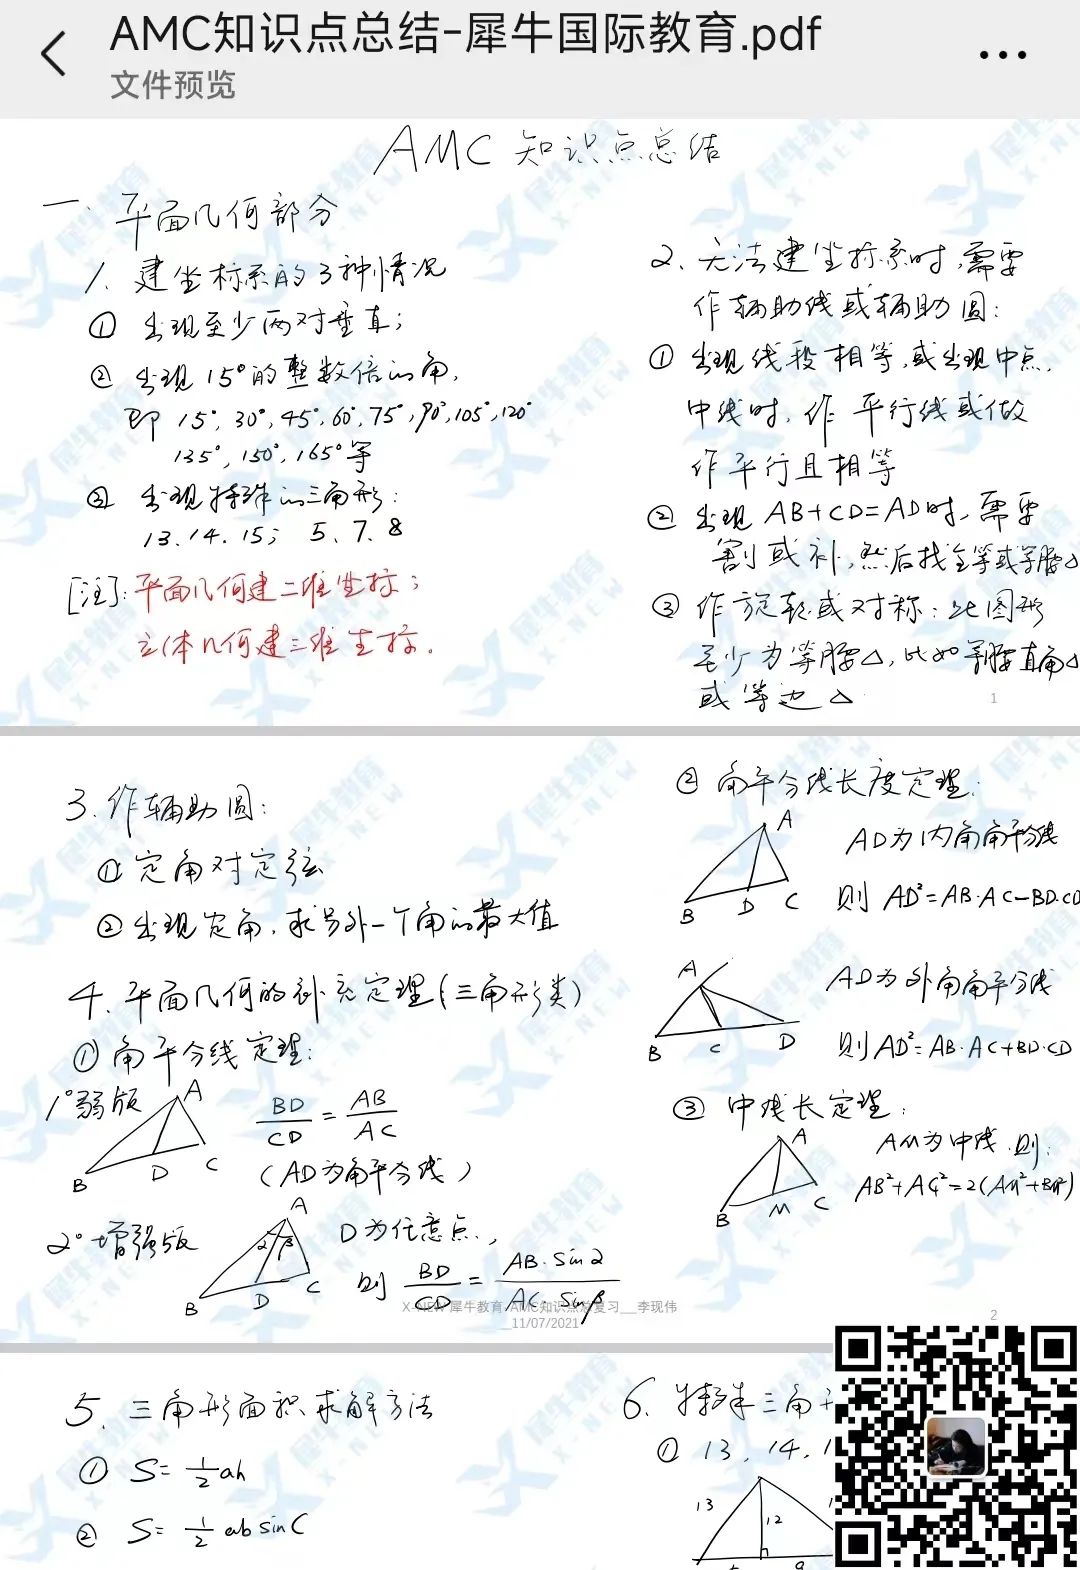 AMC知识点总结-犀牛国际教育.pdf
文件预览
AMC 知识点总结
一. 平面几何部分
1. 建坐标系的3种情况
① 出现至少两对垂直;
② 出现15°的整数倍的角,
即 15°, 30°, 45°, 60°, 75°, 90°, 105°, 120°
135°, 150°, 165°等
③ 出现特殊的三角形:
13.14.15; 5、7、8
[注]: 平面几何建二维坐标;
立体几何建三维坐标.
2、无法建坐标系时,需要
作辅助线或辅助圆:
① 出现线段相等,或出现中点,
中线时,作平行线或做
作平行且相等
② 出现 AB+CD=AD时,需要
割或补,然后找全等或等腰△
③ 作旋转或对称: 此图形
至少为等腰△, 比如等腰直角△
或等边△
1
3. 作辅助圆:
① 定角对定弦
② 出现定角,求另外一个角的最大值
4. 平面几何的补充定理(三角形类)
① 角平分线定理:
1°弱版
A
B
D
C
BD/CD = AB/AC
(AD为角平分线)
2°增强版
A
α β
B
D
C
D为任意点,
则 BD/CD = AB·sinα/AC·sinβ
② 角平分线长度定理:
A
B
D
C
AD为内角角平分线
则 AD²=AB·AC-BD·CD
A
B
C
D
AD为外角角平分线
则AD²=AB·AC+BD·CD
③ 中线长定理:
A
B
M
C
AM为中线,则:
AB²+AC²=2(AM²+BM²)
X-NEW 犀牛教育-AMC知识点总复习__李现伟
__11/07/2021
2
5. 三角形面积求解方法
① S=½ah
② S=½ab sinC
6. 特殊三角
① 13, 14, 1
13
12
9